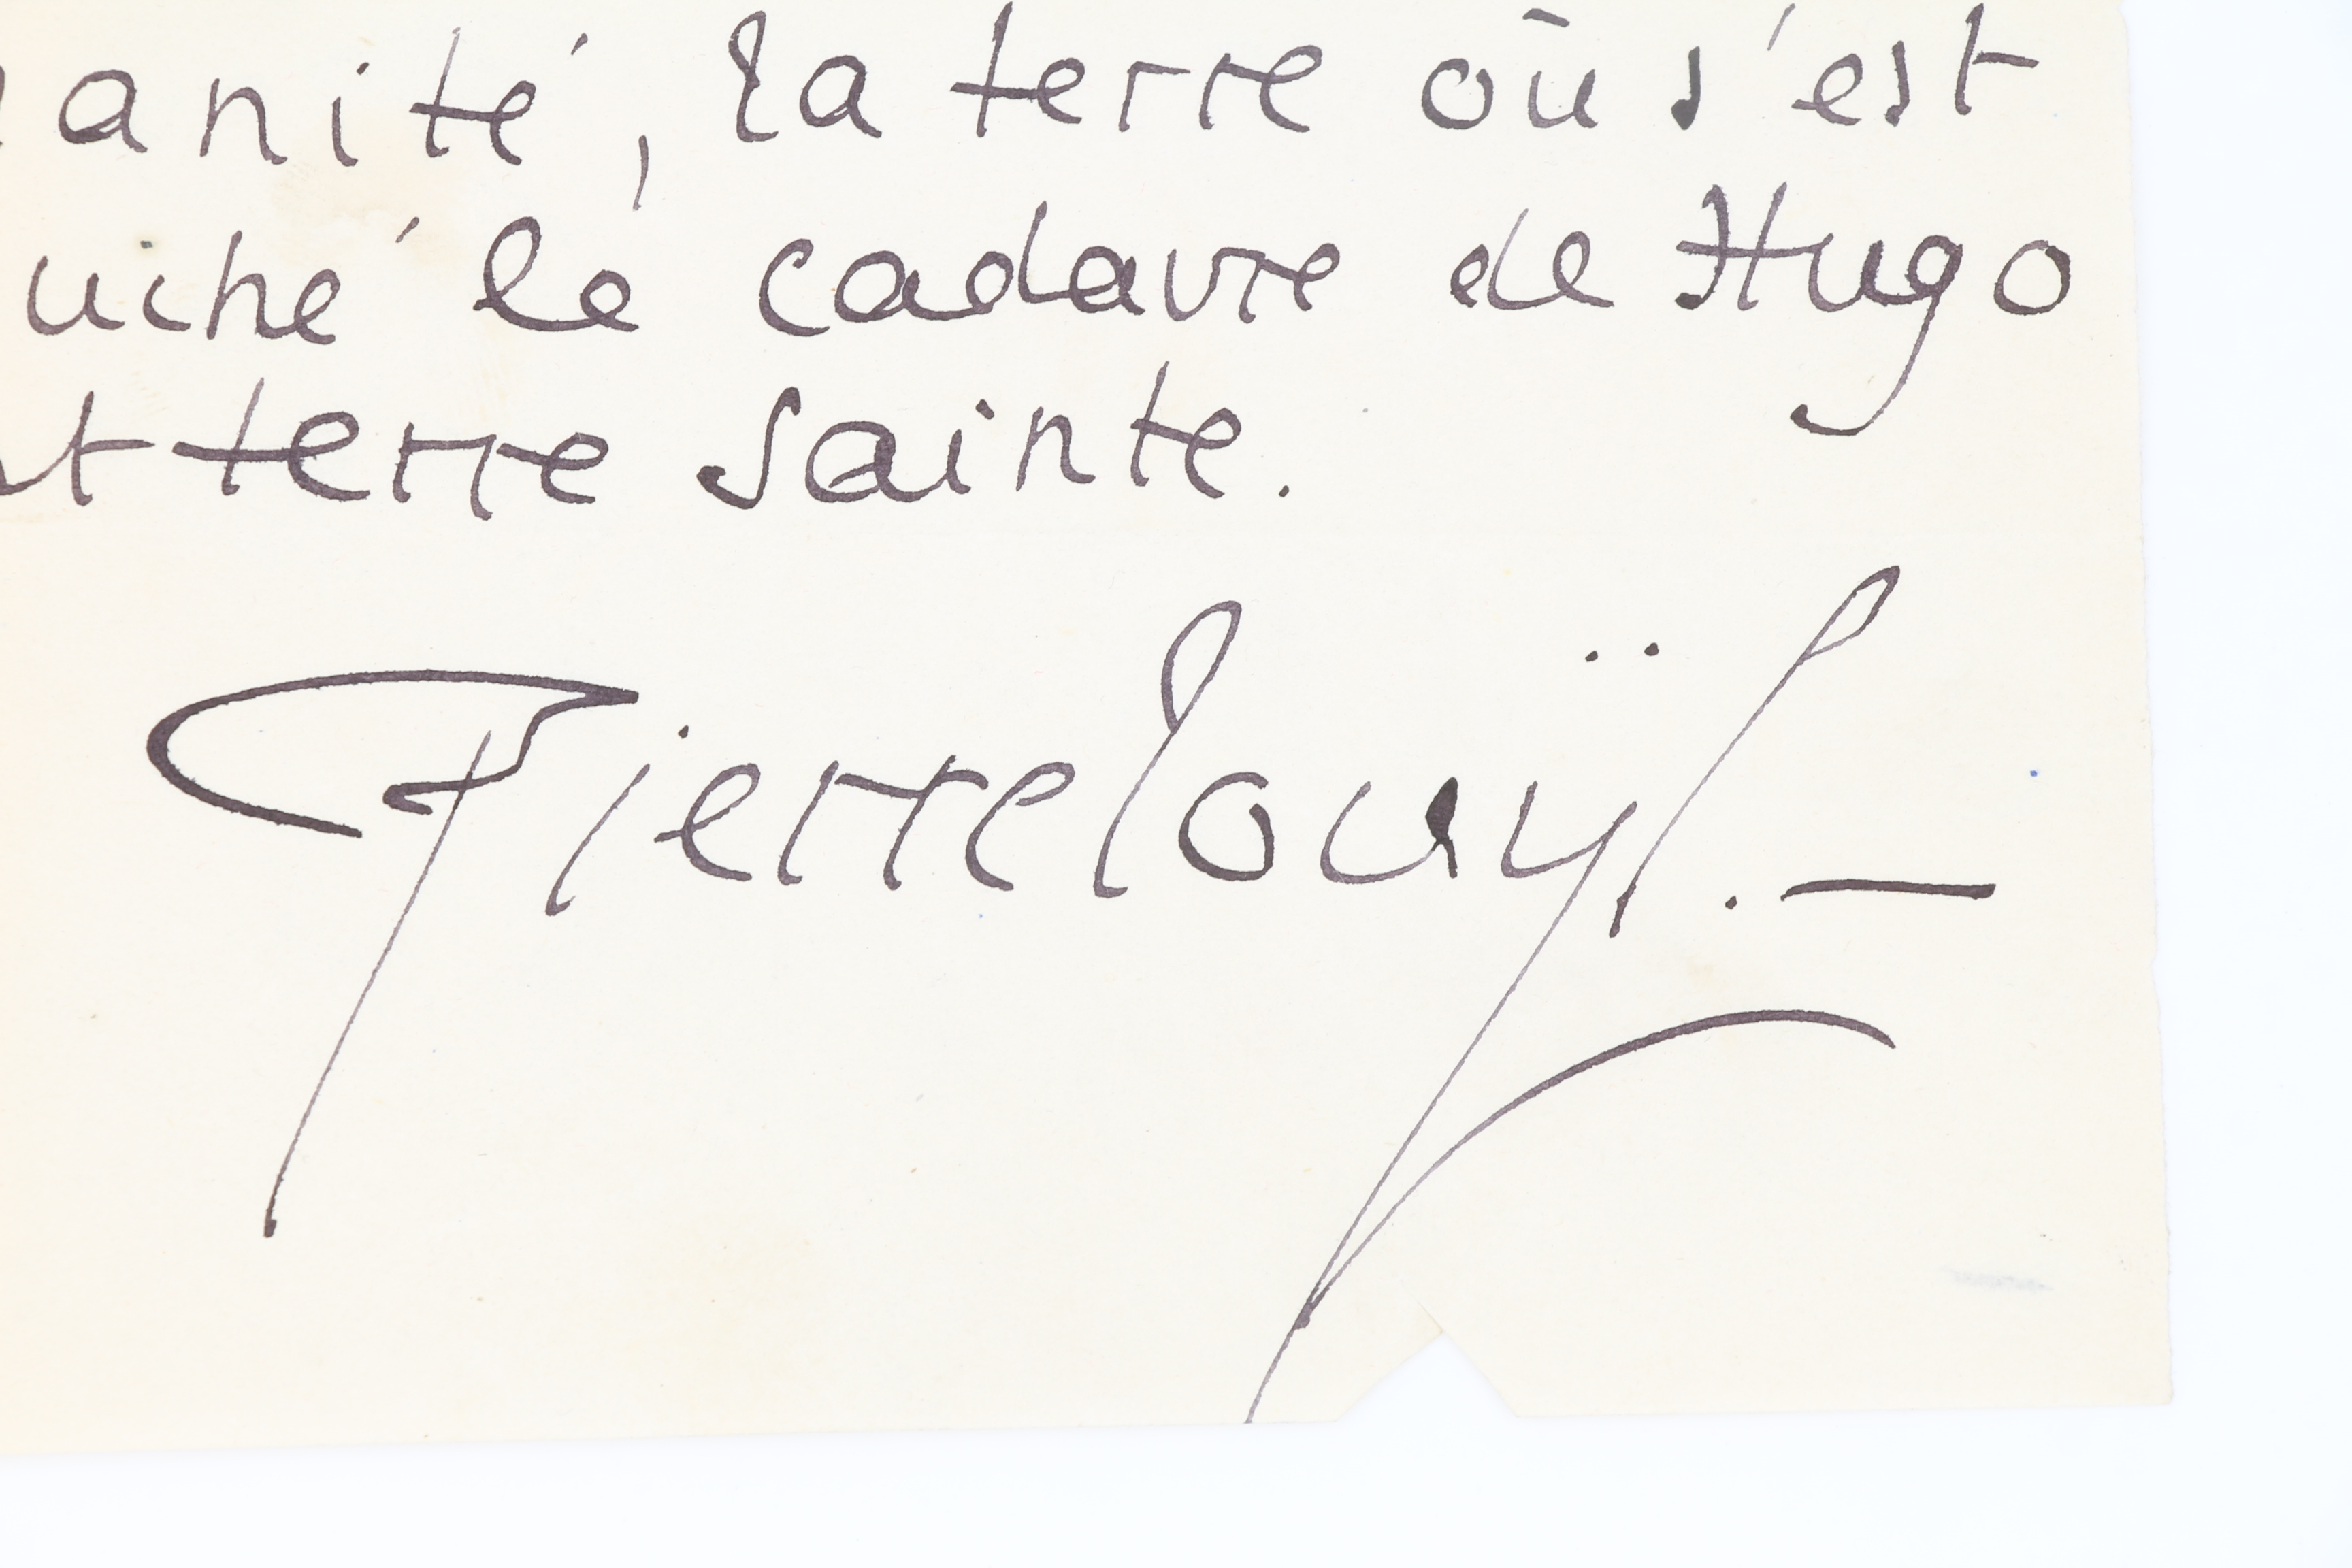 anité, la terre où s'est
uché le cadavre de Hugo
t terre sainte.
Pierre Louÿs. —